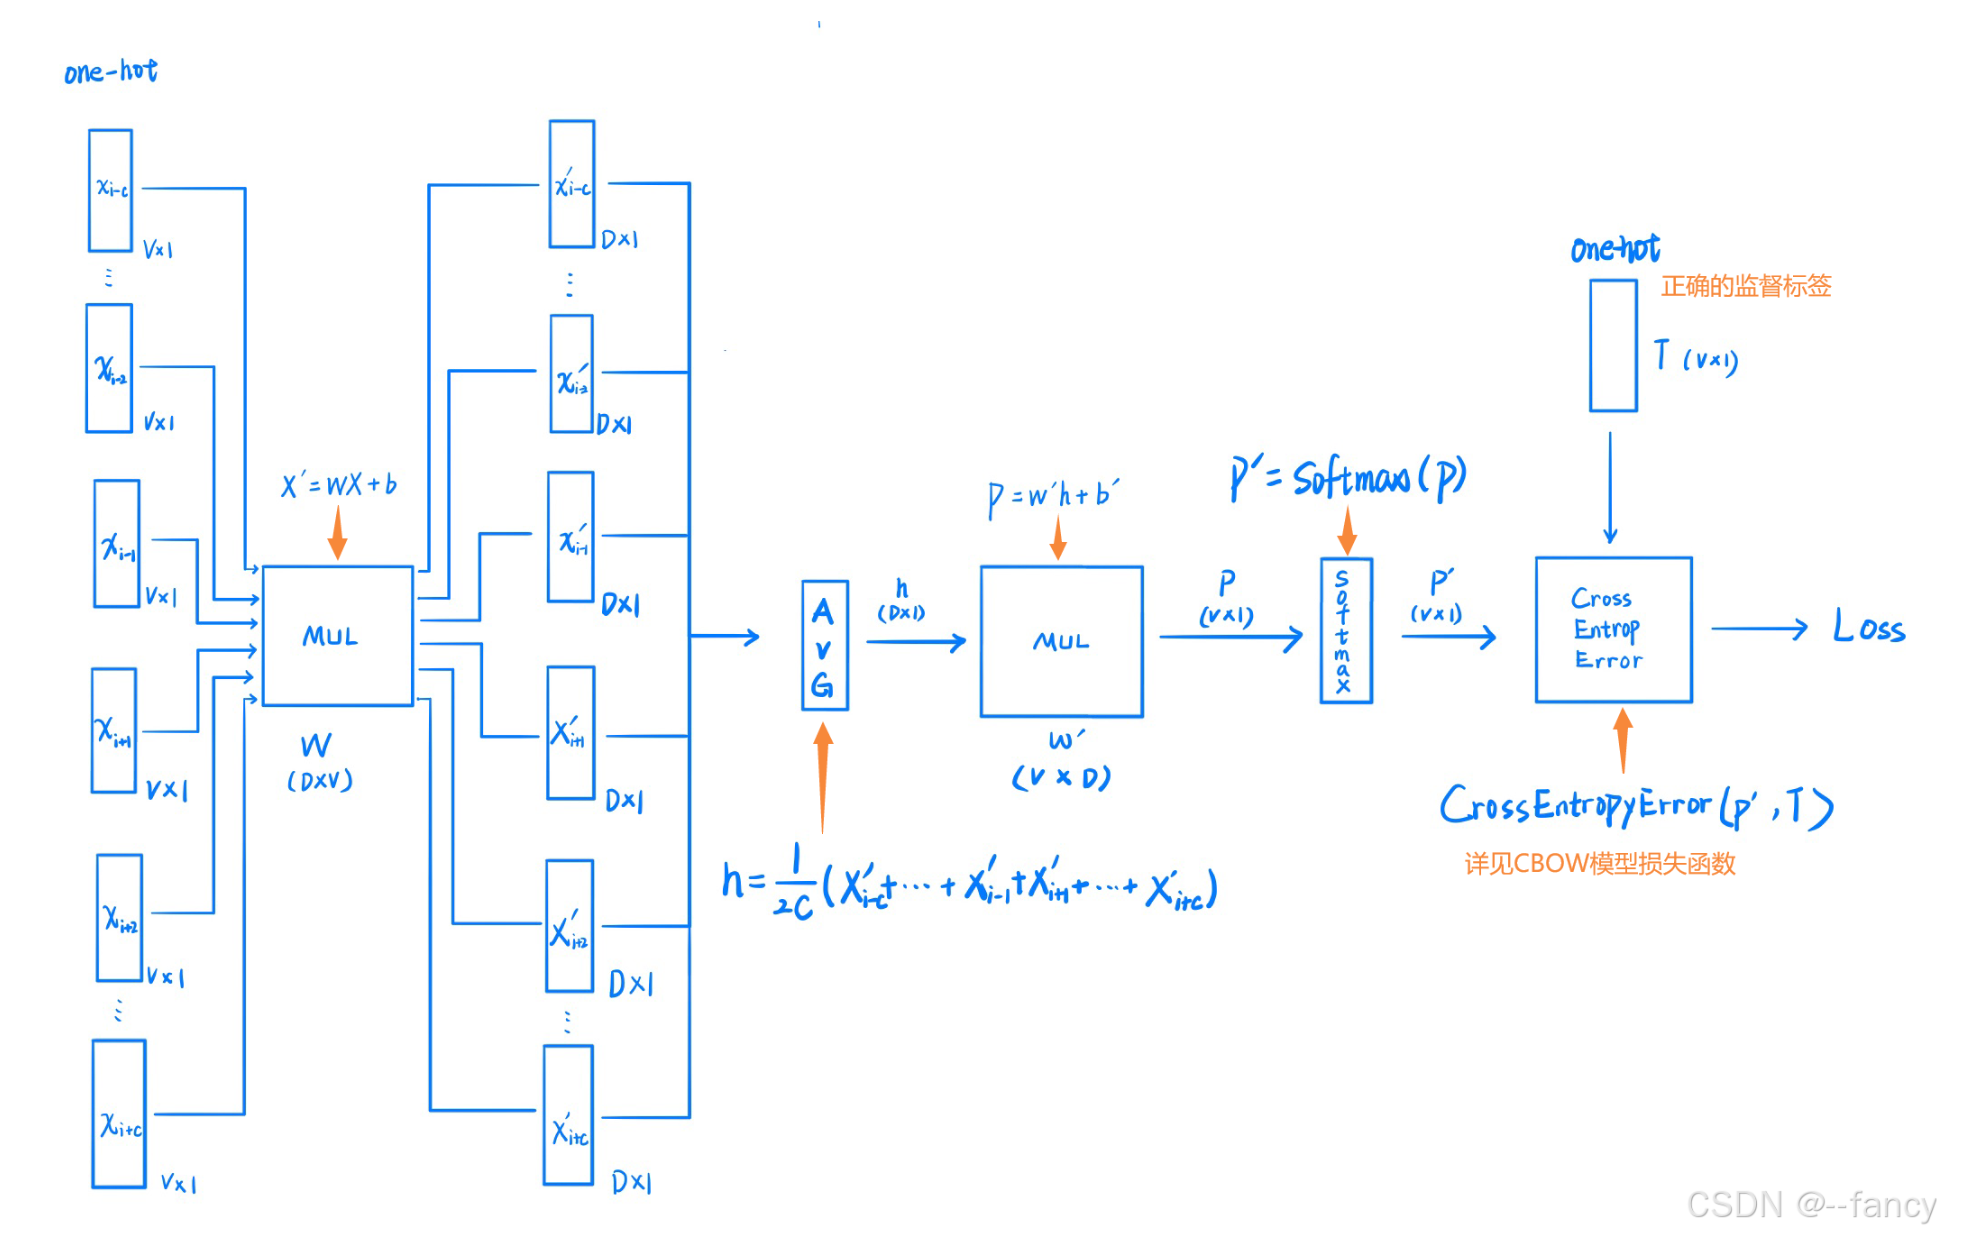 one-hot
xi-c
V×1
⋮
xi-2
V×1
xi-1
V×1
xi+1
V×1
xi+2
V×1
⋮
xi+c
V×1
X′=WX+b
MUL
W
(D×V)
x′i-c
D×1
⋮
x′i-2
D×1
x′i-1
D×1
X′i+1
D×1
X′i+2
D×1
⋮
X′i+c
D×1
AVG
h=1/2C(X′i-c+⋯+X′i-1+X′i+1+⋯+X′i+c)
h
(D×1)
P=w′h+b′
MUL
w′
(V×D)
P
(V×1)
P′=Softmax(P)
Softmax
P′
(V×1)
one-hot
正确的监督标签
T (V×1)
Cross
Entrop
Error
CrossEntropyError(P′,T)
详见CBOW模型损失函数
Loss
CSDN @--fancy